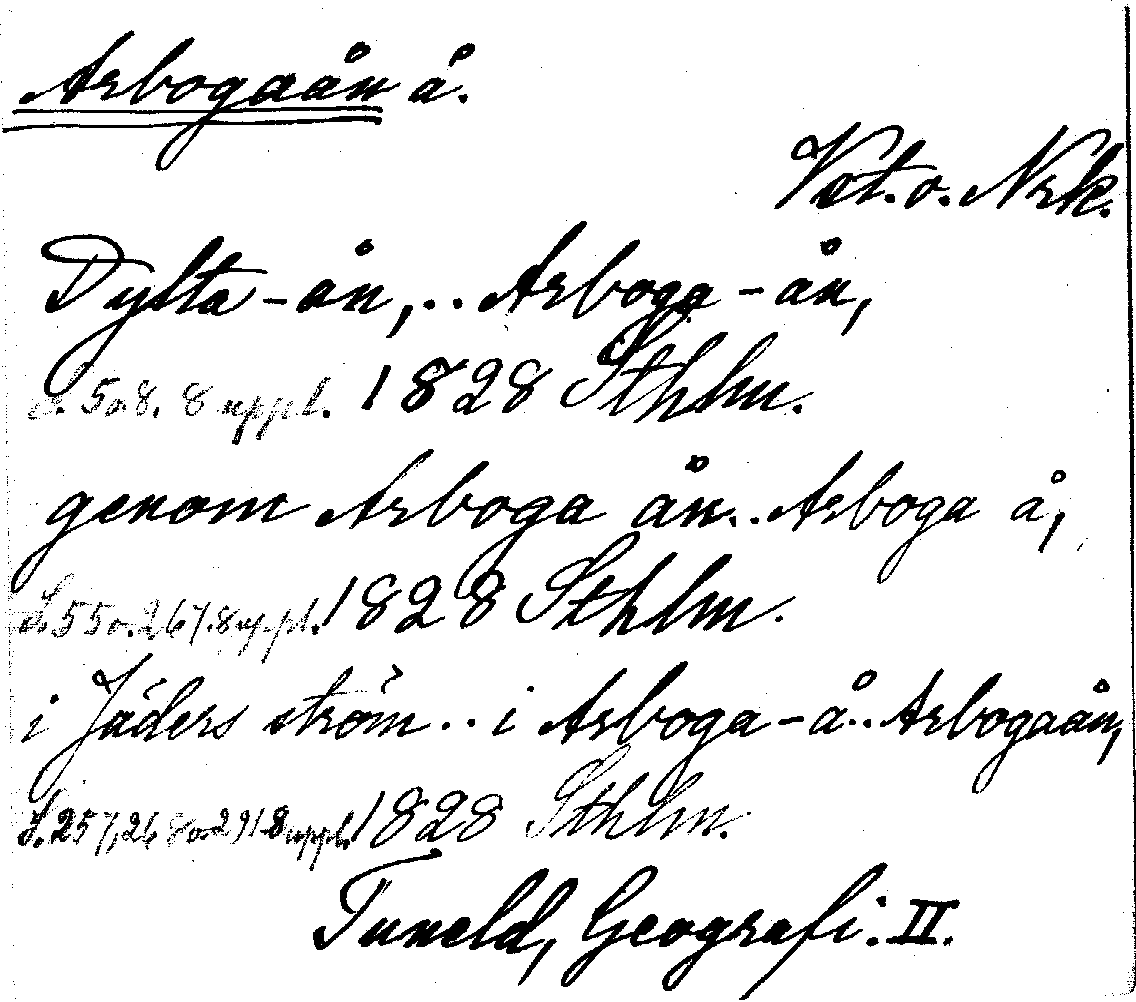 Arbogaån å.
Vst. o. Nrk.
Dylta-ån,.. Arboga-ån,
S. 5 o. 8. 8 uppl. 1828 Sthlm.
genom Arboga ån.. Arboga å,
S. 55 o. 267. 8 uppl. 1828 Sthlm.
i Jäders ström.. i Arboga-å.. Arbogaån,
S. 257, 268 o. 291 8 uppl. 1828 Sthlm.
Tuneld, Geografi. II.